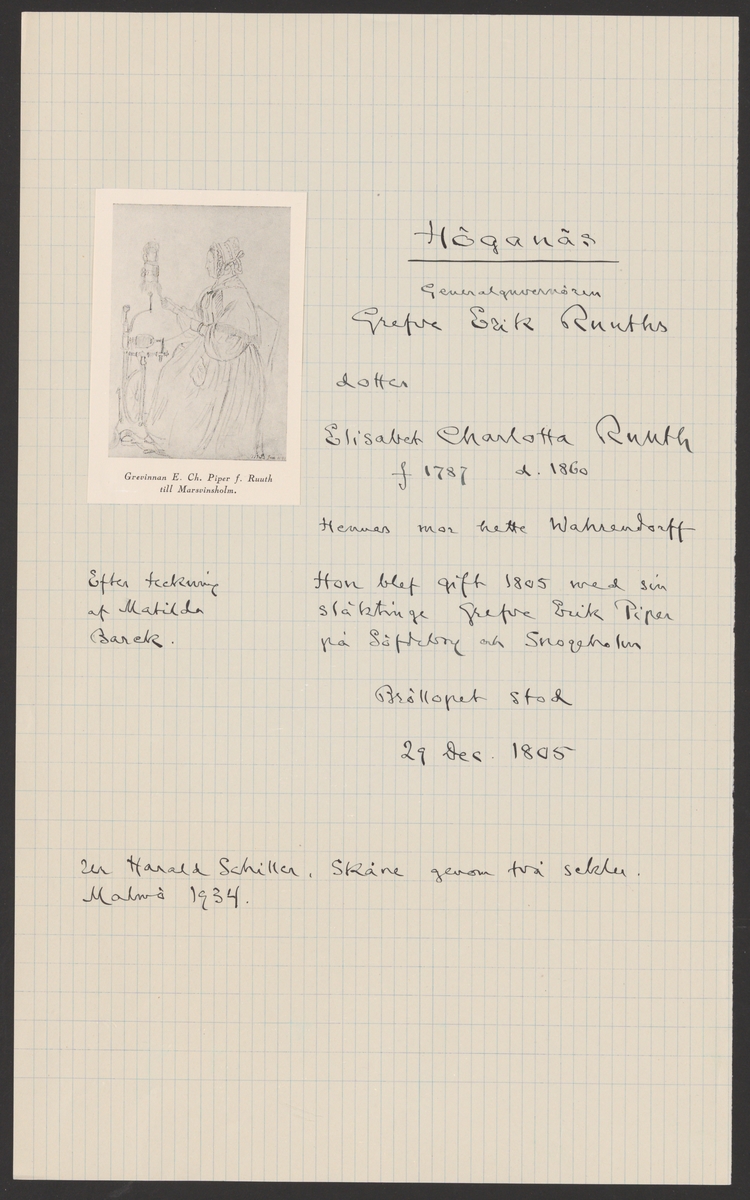 Höganäs
Generalguvernören
Grefve Erik Ruuths
dotter
Elisabet Charlotta Ruuth
f 1787 d. 1860
Hennes mor hette Wahrendorff
Hon blef gift 1805 med sin
släktinge Grefve Erik Piper
på Söfdeborg och Snogeholm
Bröllopet stod
29 Dec. 1805
Grevinnan E. Ch. Piper f. Ruuth
till Marsvinsholm.
Efter teckning
af Matilda
Barck.
ur Harald Schiller, Skåne genom två sekler.
Malmö 1934.